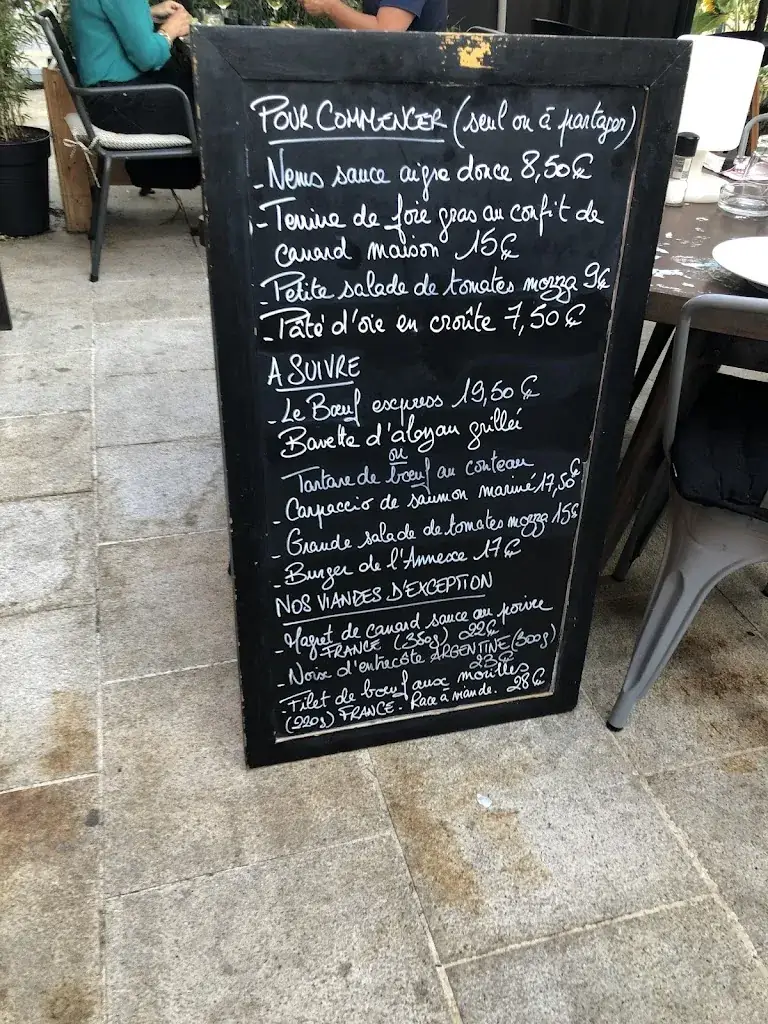 POUR COMMENCER (seul ou à partager)
- Nems sauce aigre douce 8,50€
- Terrine de foie gras au confit de
canard maison 15€
- Petite salade de tomates mozza 9€
- Pâté d'oie en croûte 7,50€
A SUIVRE
- Le Bœuf express 19,50€
Bavette d'aloyau grillée
ou
Tartare de bœuf au couteau
- Carpaccio de saumon mariné 17,50€
- Grande salade de tomates mozza 15€
- Burger de l'Annexe 17€
NOS VIANDES D'EXCEPTION
- Magret de canard sauce au poivre
FRANCE (350g) 22€
- Noix d'entrecôte ARGENTINE (300g)
23€
- Filet de bœuf aux morilles
(220g) FRANCE. Race à viande. 28€